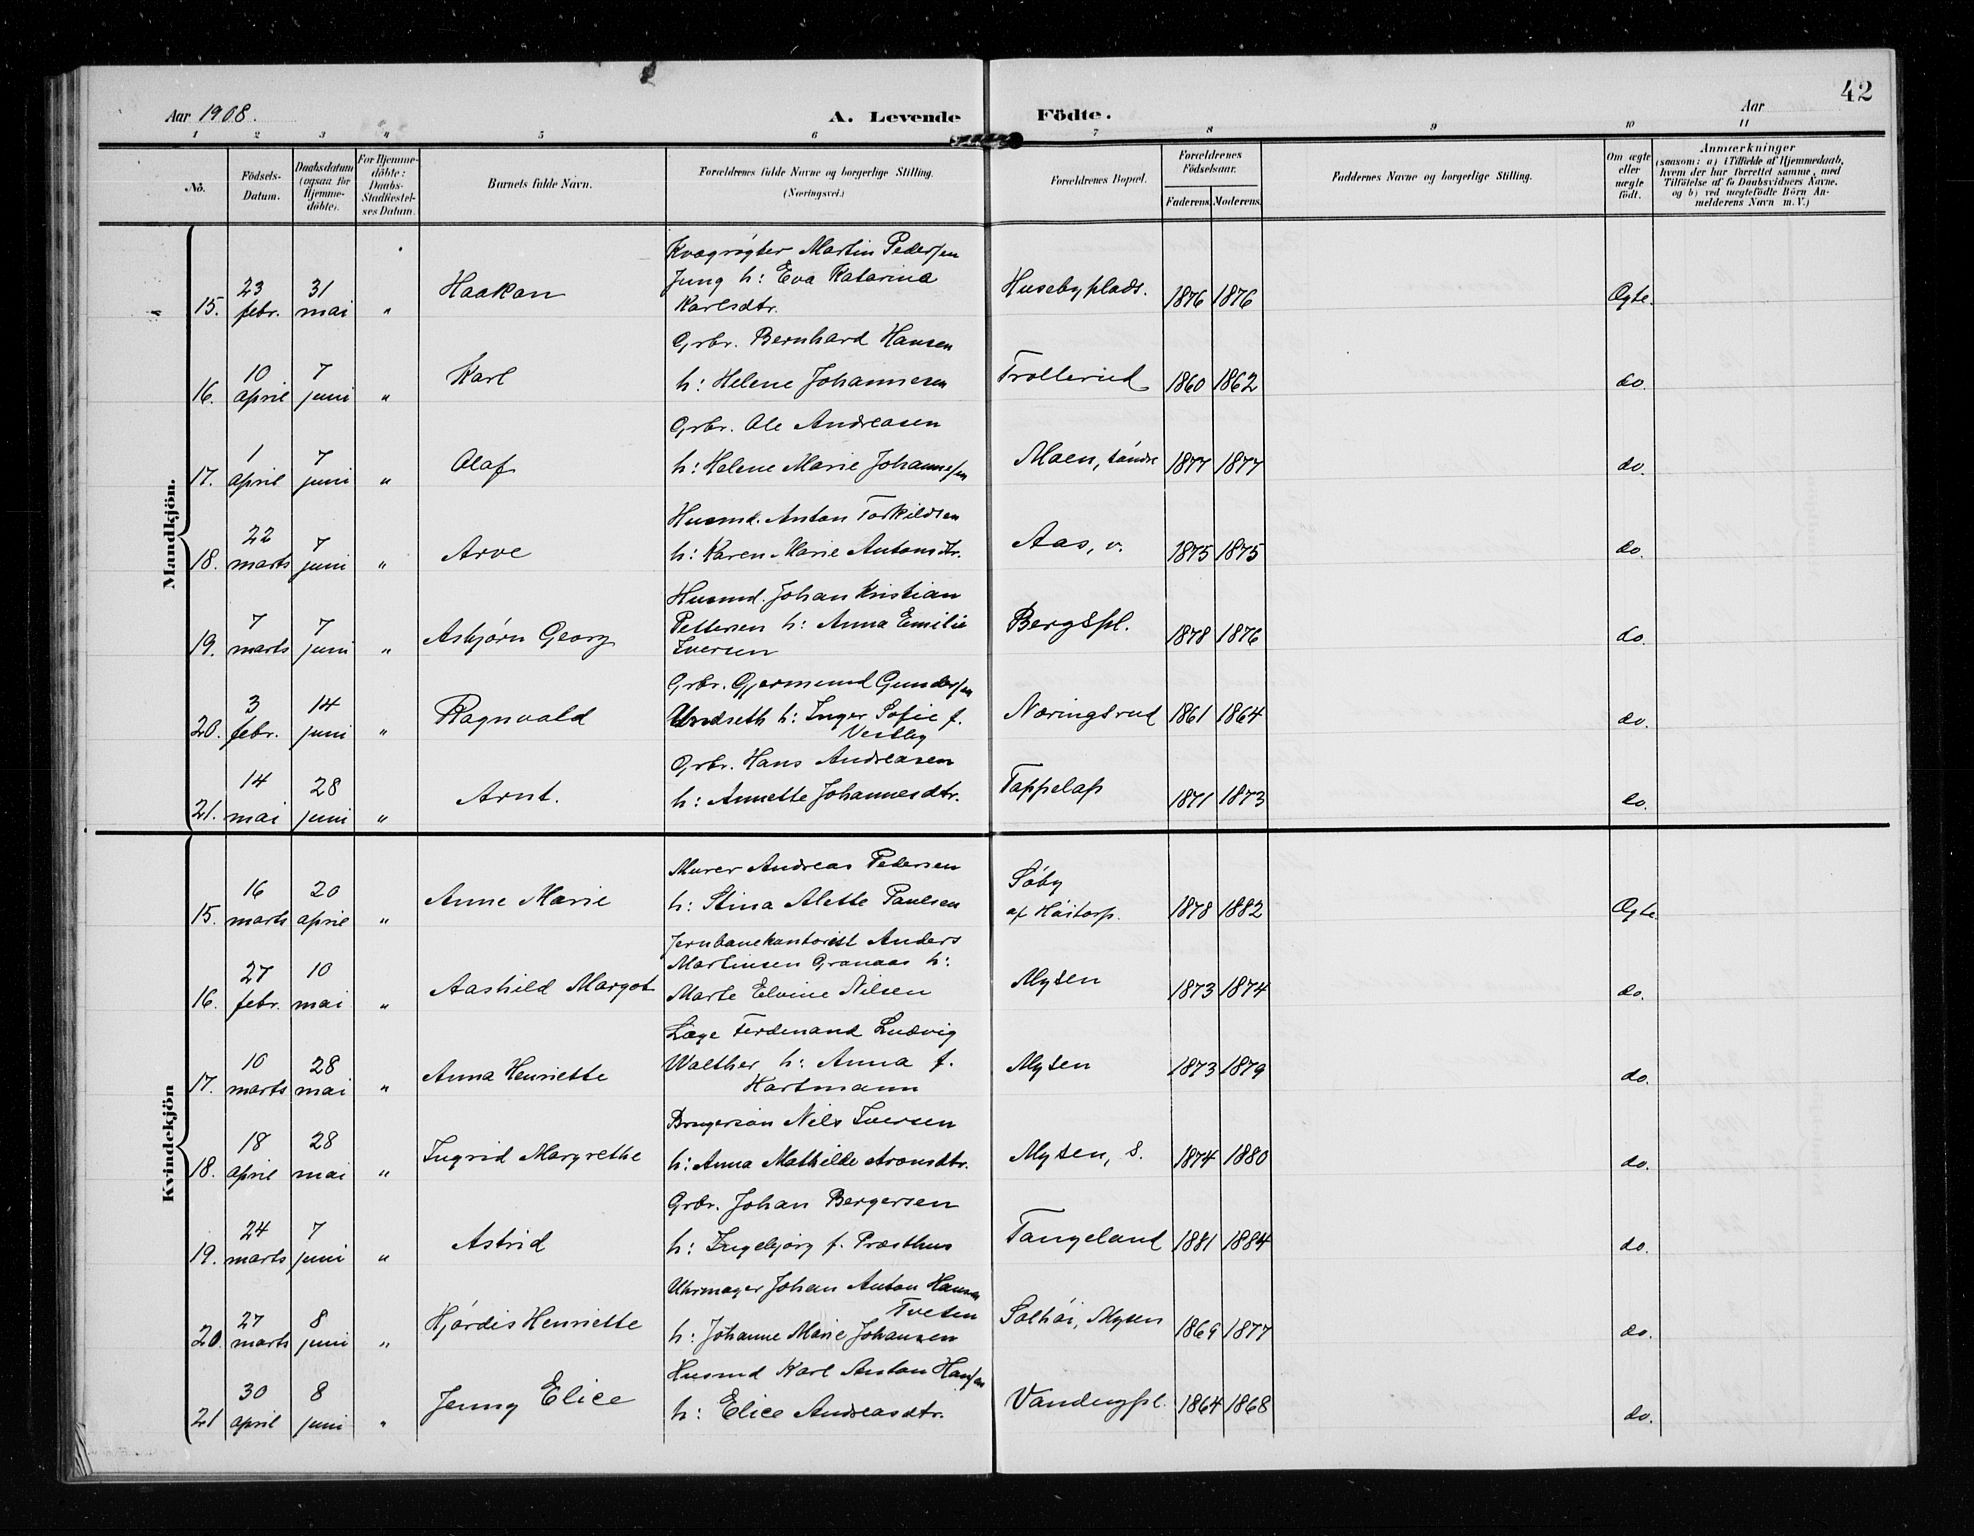 42
Aar 1908.
A. Levende Födte.
Aar
1 2 3 4 5 6 7 8 9 10 11
No.
Födsels-Datum.
Daabsdatum (ogsaa for Hjemme-döbte).
For Hjemme-döbte: Daabs-Stadfæstel-ses Datum.
Barnets fulde Navn.
Forældrenes fulde Navne og borgerlige Stilling. (Næringsvei.)
Forældrenes Bopæl.
Forældrenes Födselsaar.
Faderens. Moderens.
Faddernes Navne og borgerlige Stilling.
Om ægte eller uægte födt.
Anmærkninger
(saasom: a) i Tilfælde af Hjemmedaab, hvem der har forrettet samme, med Tilföielse af to Daabsvidners Navne, og b) ved uægtefödte Börn An-melderens Navn m. V.)
Mandkjön.
15. 23 febr. 31 mai " Haakon Kvægrøgter Martin Pedersen Jung h: Eva Katarina Karlsdtr. Husebyplads. 1876 1876 Ægte.
16. 10 april 7 juni " Karl Grbr. Bernhard Hansen h: Helene Johannesen Trollerud 1860 1862 do.
17. 1 april 7 juni " Olaf Grbr. Ole Andreasen h: Helene Marie Johannesen Moen, søndre 1877 1877 do.
18. 22 marts 7 juni " Arve Husmd. Anton Torkildsen h: Karen Marie Antonsdtr. Aas, v. 1875 1875 do.
19. 7 marts 7 juni " Asbjørn Georg Husmd. Johan Kristian Pettersen h: Anna Emilie Iversen Bergspl. 1878 1876 do.
20. 3 febr. 14 juni " Ragnvald Grbr. Gjermund Gundersen Undseth h: Inger Sofie f. Vestby Næringsrud 1861 1864 do.
21. 14 mai 28 juni " Arnt. Grbr. Hans Andreasen h: Annette Johannesdtr. Tappelap 1871 1873 do.
Kvindekjön
15. 16 marts 20 april " Anne Marie Murer Andreas Pedersen h: Stina Alette Paulsen Søby af Høitorp. 1878 1882 Ægte.
16. 27 febr. 10 mai " Aashild Margot Jernbanekontorist Anders Martinsen Granaas h: Marte Elvine Nilsen Mysen 1873 1874 do.
17. 10 marts 28 mai " Anna Henriette Læge Ferdinand Ludvig Walther h: Anna f. Hartmann Mysen 1873 1879 do.
18. 18 april 28 mai " Ingrid Margrethe Brugersøn Nils Iversen h: Anna Mathilde Aronsdtr. Mysen, s. 1874 1880 do.
19. 24 marts 7 juni " Astrid Grbr. Johan Bergersen h: Ingebjørg f. Præsthus Tangeland 1881 1884 do.
20. 27 marts 8 juni " Hjørdis Henriette Uhrmager Johan Anton Hansen Tveten h: Johanne Marie Johansen Solhøi, Mysen 1869 1877 do.
21 30 april 8 juni " Jenny Elice Husmd Karl Anton Hansen h: Elice Andreasdtr. Vandugpl. 1864 1868 do.